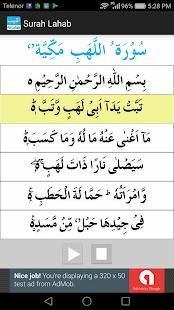 Telenor 78% 5:28 PM
Surah Lahab
سُوْرَةُ اللَّهَبِ مَكِّيَّةٌ
بِسْمِ اللّٰهِ الرَّحْمٰنِ الرَّحِيْمِ
تَبَّتْ يَدَآ اَبِيْ لَهَبٍ وَّتَبَّ
مَآ اَغْنٰى عَنْهُ مَا لُهٗ وَ مَا كَسَبَ
سَيَصْلٰى نَارًا ذَاتَ لَهَبٍ
وَّامْرَاَتُهٗ حَمَّا لَةَ الْحَطَبِ
فِيْ جِيْدِهَا حَبْلٌ مِّنْ مَّسَدٍ
Nice job! You're displaying a 320 x 50
test ad from AdMob.
AdMob by Google